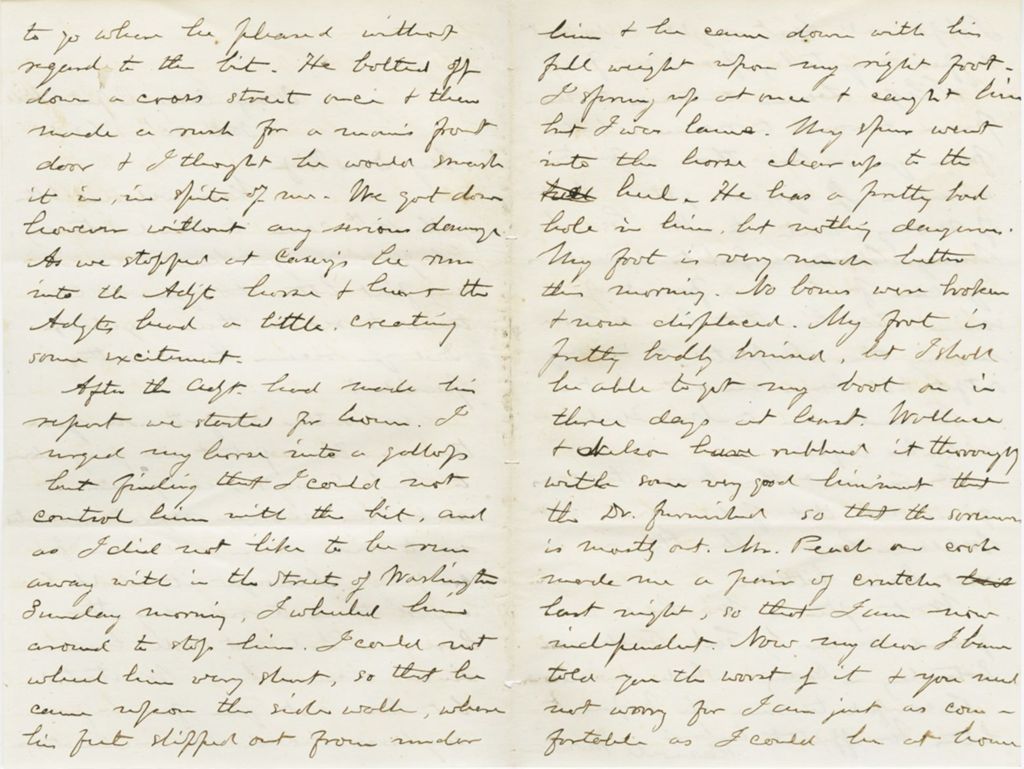 to go where he pleased without
regard to the bit. He bolted off
down a cross street once & then
made a rush for a man's front
door & I thought he would smash
it in, in spite of me. We got down
however without any serious damage.
As we stopped at Casey's he run
into the Adjt horse & hurt the
Adjts head a little, creating
some excitement.
After the Adjt. had made his
report we started for home. I
urged my horse into a gallop
but finding that I could not
control him with the bit, and
as I did not like to be run
away with in the street of Washington
Sunday morning, I wheeled him
around to stop him. I could not
wheel him very short, so that he
came upon the side walk, where
his feet slipped out from under
him & he came down with his
full weight upon my right foot.
I sprung up at once & caught him
but I was lame. My spur went
into the horse clear up to the
heel. He has a pretty bad
hole in him, but nothing dangerous.
My foot is very much better
this morning. No bones were broken
& none displaced. My foot is
pretty badly bruised, but I shall
be able to get my boot on in
three days at least. Wallace
& have rubbed it thoroughly
with some very good liniment that
the Dr. furnished so that the soreness
is mostly out. Mr. Peach our cook
made me a pair of crutches
last night, so that I am now
independent. Now my dear I have
told you the worst of it & you need
not worry for I am just as com-
fortable as I could be at home